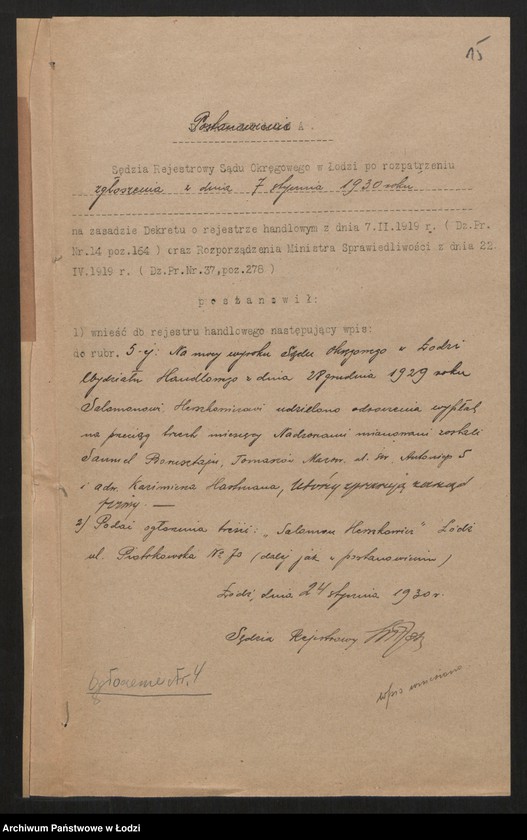 15
Postanowienie A.
Sędzia Rejestrowy Sądu Okręgowego w Łodzi po rozpatrzeniu
zgłoszenia z dnia 7 stycznia 1930 roku
na zasadzie Dekretu o rejestrze handlowym z dnia 7.II.1919 r. ( Dz.Pr.
Nr.14 poz.164 ) oraz Rozporządzenia Ministra Sprawiedliwości z dnia 22
IV.1919 r. ( Dz.Pr.Nr.37,poz.278 )
postanowił:
1) wnieść do rejestru handlowego następujący wpis:
do rubr. 5-ej: Na mocy wyroku Sądu Okręgowego w Łodzi
Wydziału Handlowego z dnia 28 grudnia 1929 roku
Salamonowi Herszkowiczowi udzielono odroczenia wypłat
na przeciąg trzech miesięcy Nadzorcami mianowani zostali
Samuel, Tomaszów Mazow. ul. św. Antoniego 5
i adw. Kazimierz Hartman, którzy zarząd
firmy. —
2) Podać ogłoszenie treści: „Salamon Herszkowicz" Łódź
ul. Piotrkowska № 70 (dalej jak w postanowieniu)
Łódź, dnia 24 stycznia 1930 r.
Sędzia Rejestrowy
Ogłoszenie Nr. 4
wpis wniesiono
Archiwum Państwowe w Łodzi